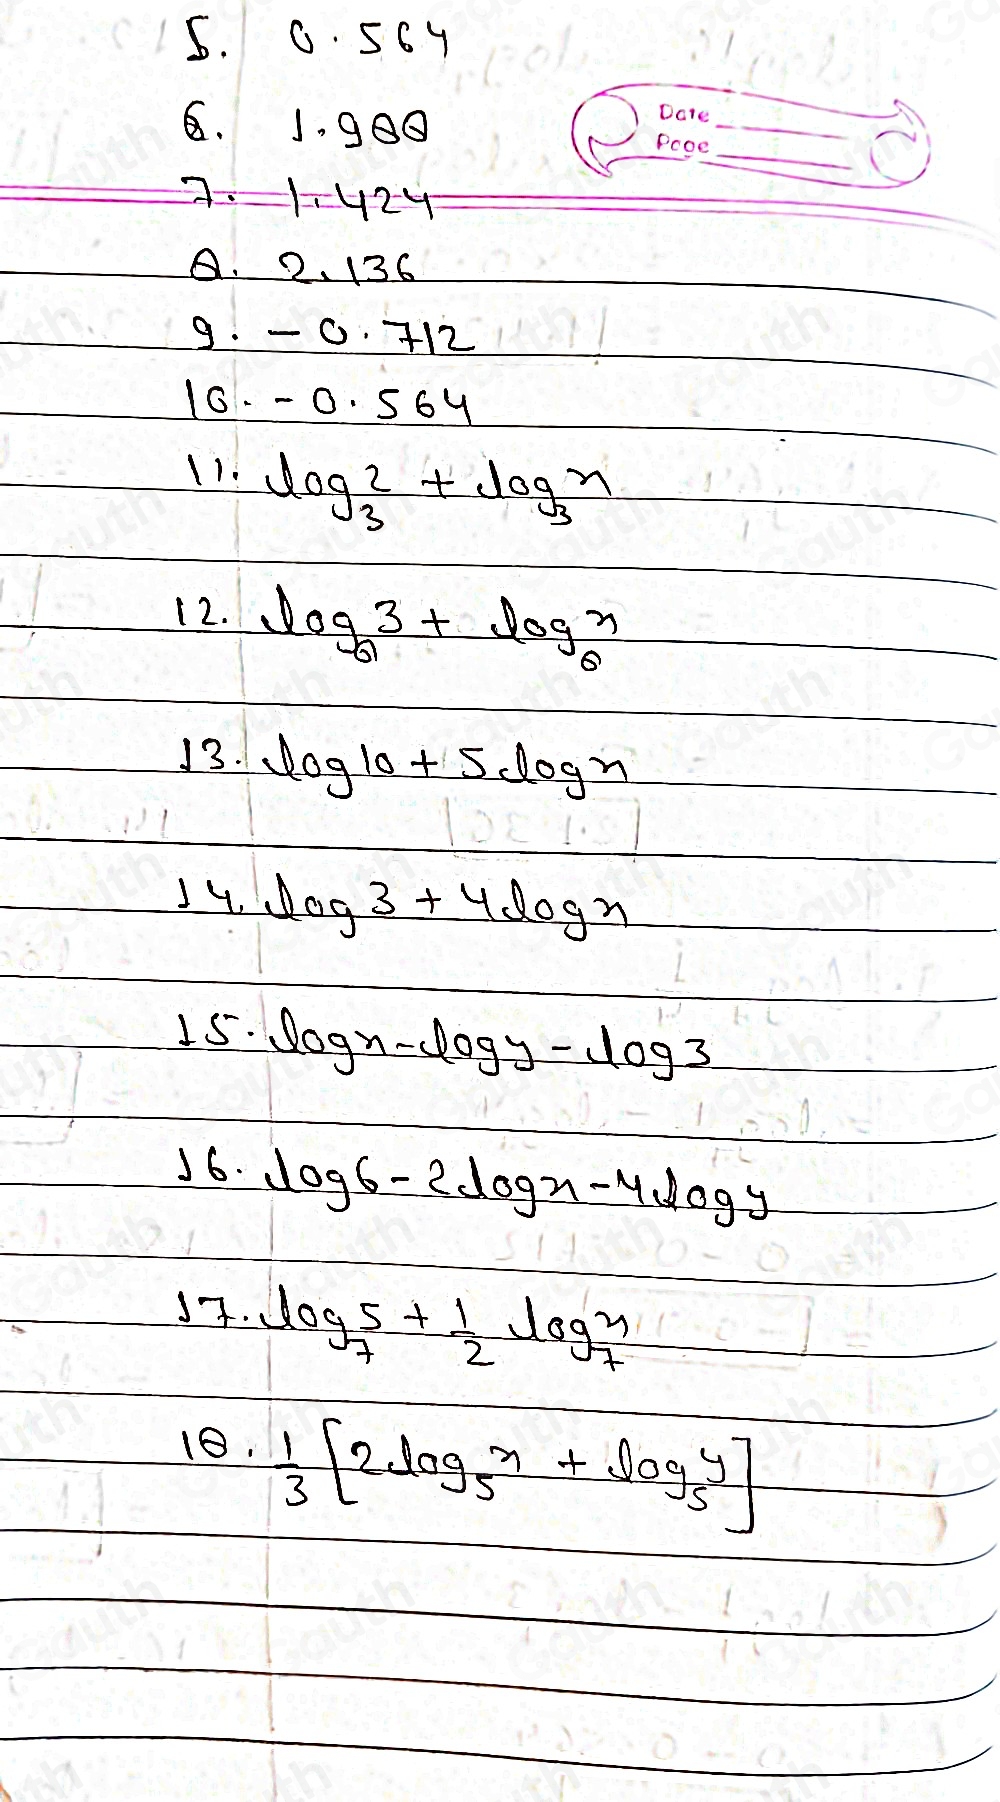 5. 0.564
6. 1.988
Date
Page
7. 1.424
8. 2.136
9. -0.712
10. -0.564
11. log₃2 + log₃x
12. log₈3 + log₈x
13. log10 + 5logx
14. log3 + 4logx
15. logx - logy - log3
16. log6 - 2logx - 4logy
17. log₇5 + 1/2 log₇x
18. 1/3 [2log₅x + log₅y]